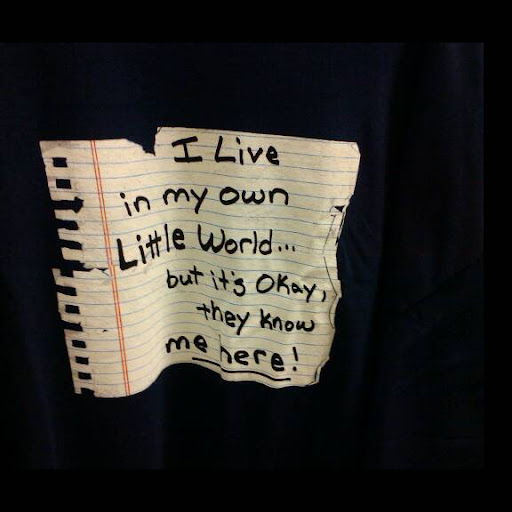 I Live
in my own
Little World...
but it's Okay,
they know
me here!